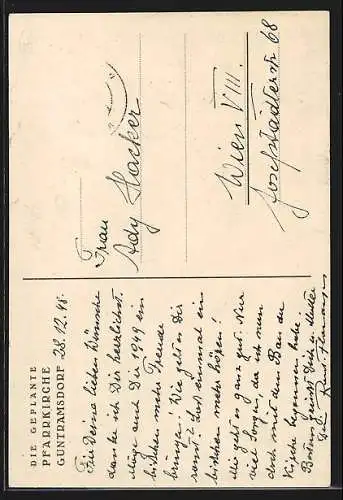 DIE GEPLANTE
PFARRKIRCHE
GUNTRAMSDORF 28.12.48.
Für Deine lieben Wünsche
danke ich Dir herzlichst.
Möge auch Dir 1949 ein
bißchen mehr Freude
bringen! Wie geht es Dir
sonst? Laß einmal ein
bißchen mehr hören!
Mir geht es ganz gut. Nur
viel Sorgen, da ich nun
doch mit dem Bau der
Kirche beginnen habe
grüßt Dich u. Mutter
Dein
Frau
Ady Hacker
Wien VIII.
Josefstädterstr 68